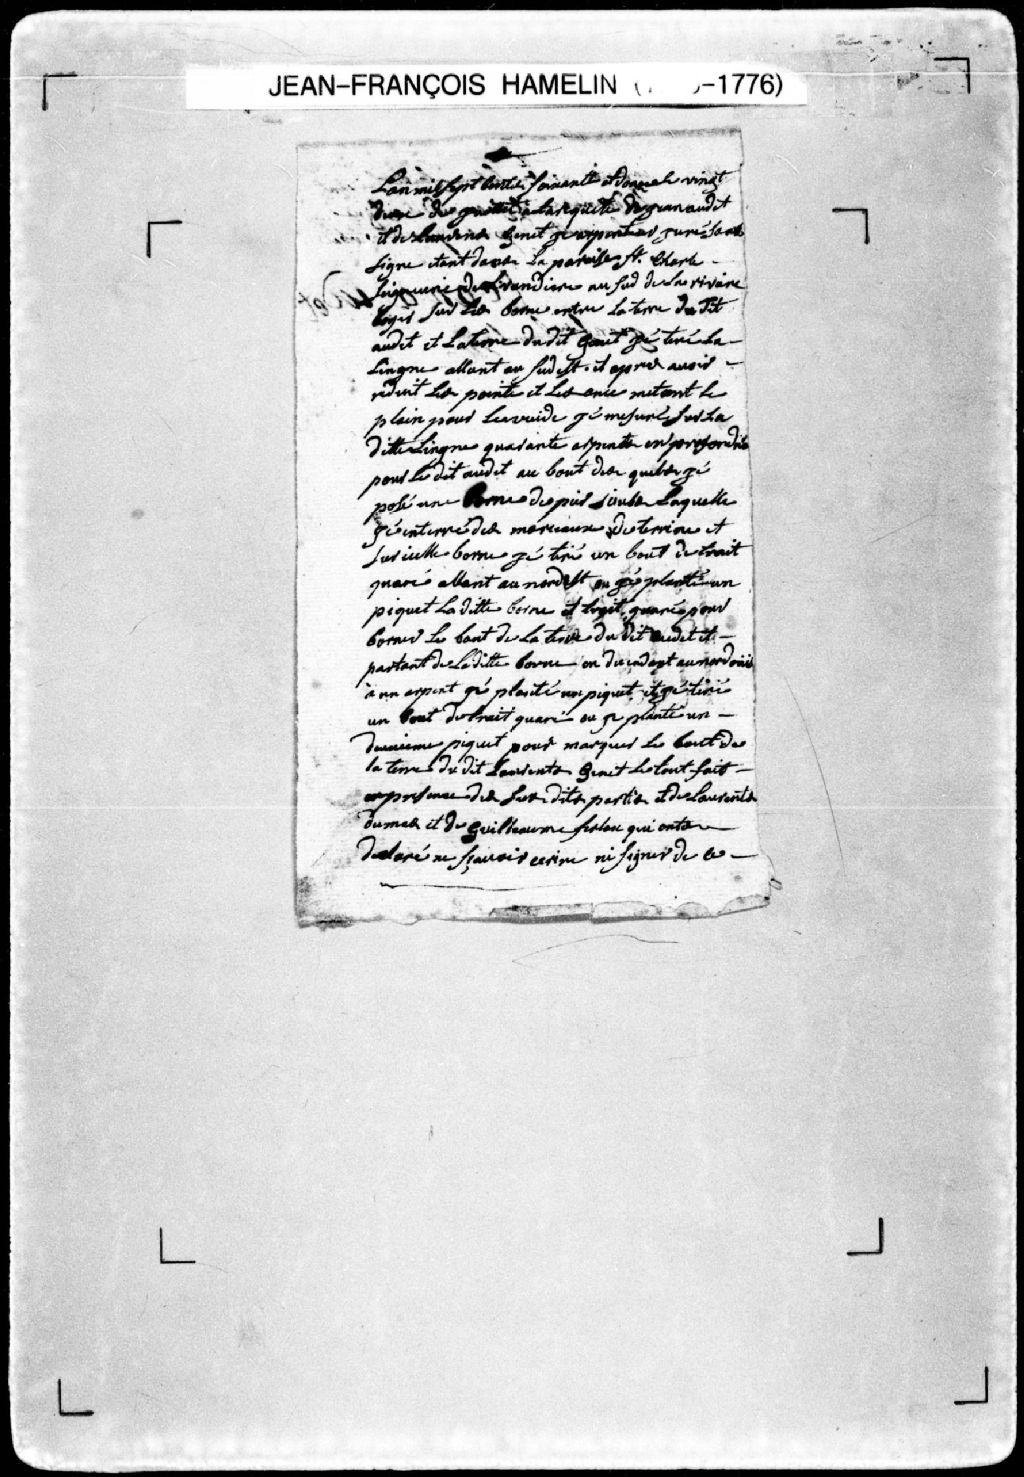 JEAN-FRANÇOIS HAMELIN ( -1776)
Lan mil sept cents soixante et douze le vingt
deux de juillet a la requete de jean audet
et de Laurens Genet je arpenteur juré sous
signe etant dans la paroisse St. Charle
seigneurie de Livaudiere au sud de la riviere
boyer sur les borne entre la terre du dit
audet et la terre du dit Genet gé tiré la
Lingne allant au sud est et apres avoir
reduit les pointe et les ance metant le
plein pour le vuide gé mesuré sur la
ditte Lingne quarante arpents en profondeur
pour le dit audet au bout des quels gé
posé une borne de pier soubs laquelle
gé enterré des morceaux de terrine et
sur icelle borne gé tiré un bout de trait
quaré allant au nord est ou gé planté un
piquet la ditte borne et trait quaré pour
borner le bout de la terre du dit audet et
partant de la ditte borne en au nord
a un arpent gé planté un piquet et gé tiré
un bout de trait quaré ou je planté un
deuxieme piquet pour marquer le bout de
la terre du dit Laurents Genet le tout fait
en presence des sus dits partie et de Laurents
dumas et de Guilleaume qui onts
declaré ne sçavoir ecrire ni signer de ce